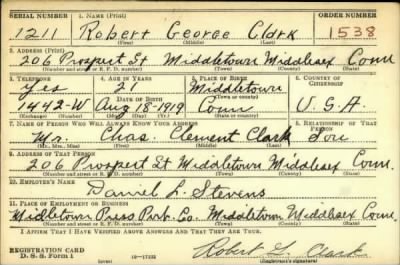 SERIAL NUMBER 1. NAME (Print) ORDER NUMBER
1211 Robert George Clark 1538
(First) (Middle) (Last)
2. ADDRESS (Print)
206 Prospect St Middletown Middlesex Conn
(Number and street or R. F. D. number) (Town) (County) (State)
3. TELEPHONE 4. AGE IN YEARS 5. PLACE OF BIRTH 6. COUNTRY OF CITIZENSHIP
Yes 21 Middletown
DATE OF BIRTH (Town or county)
1442-W Aug 18-1919 Conn U.S.A.
(Exchange) (Number) (Mo.) (Day) (Yr.) (State or country)
7. NAME OF PERSON WHO WILL ALWAYS KNOW YOUR ADDRESS 8. RELATIONSHIP OF THAT PERSON
Mr. Chas. Clement Clark
(Mr., Mrs., Miss) (First) (Middle) (Last)
9. ADDRESS OF THAT PERSON
206 Prospect St Middletown Middlesex Conn.
(Number and street or R. F. D. number) (Town) (County) (State)
10. EMPLOYER'S NAME
Daniel L. Stevens
11. PLACE OF EMPLOYMENT OR BUSINESS
Middletown Press Co. Middletown Middlesex Conn.
(Number and street or R. F. D. number) (Town) (County) (State)
I AFFIRM THAT I HAVE VERIFIED ABOVE ANSWERS AND THAT THEY ARE TRUE.
REGISTRATION CARD
D. S. S. Form 1 Robert G. Clark
(Registrant's signature)